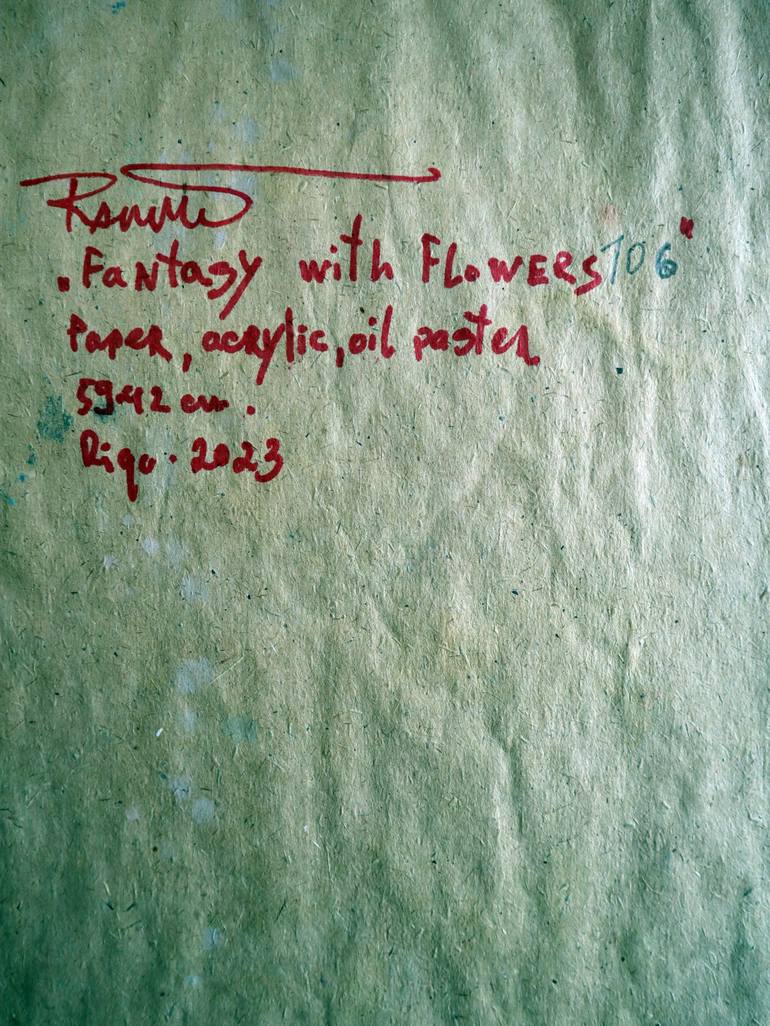 „Fantasy with FLOWERS 106"
Paper, acrylic, oil pastel
59×42 cm.
Riga. 2023